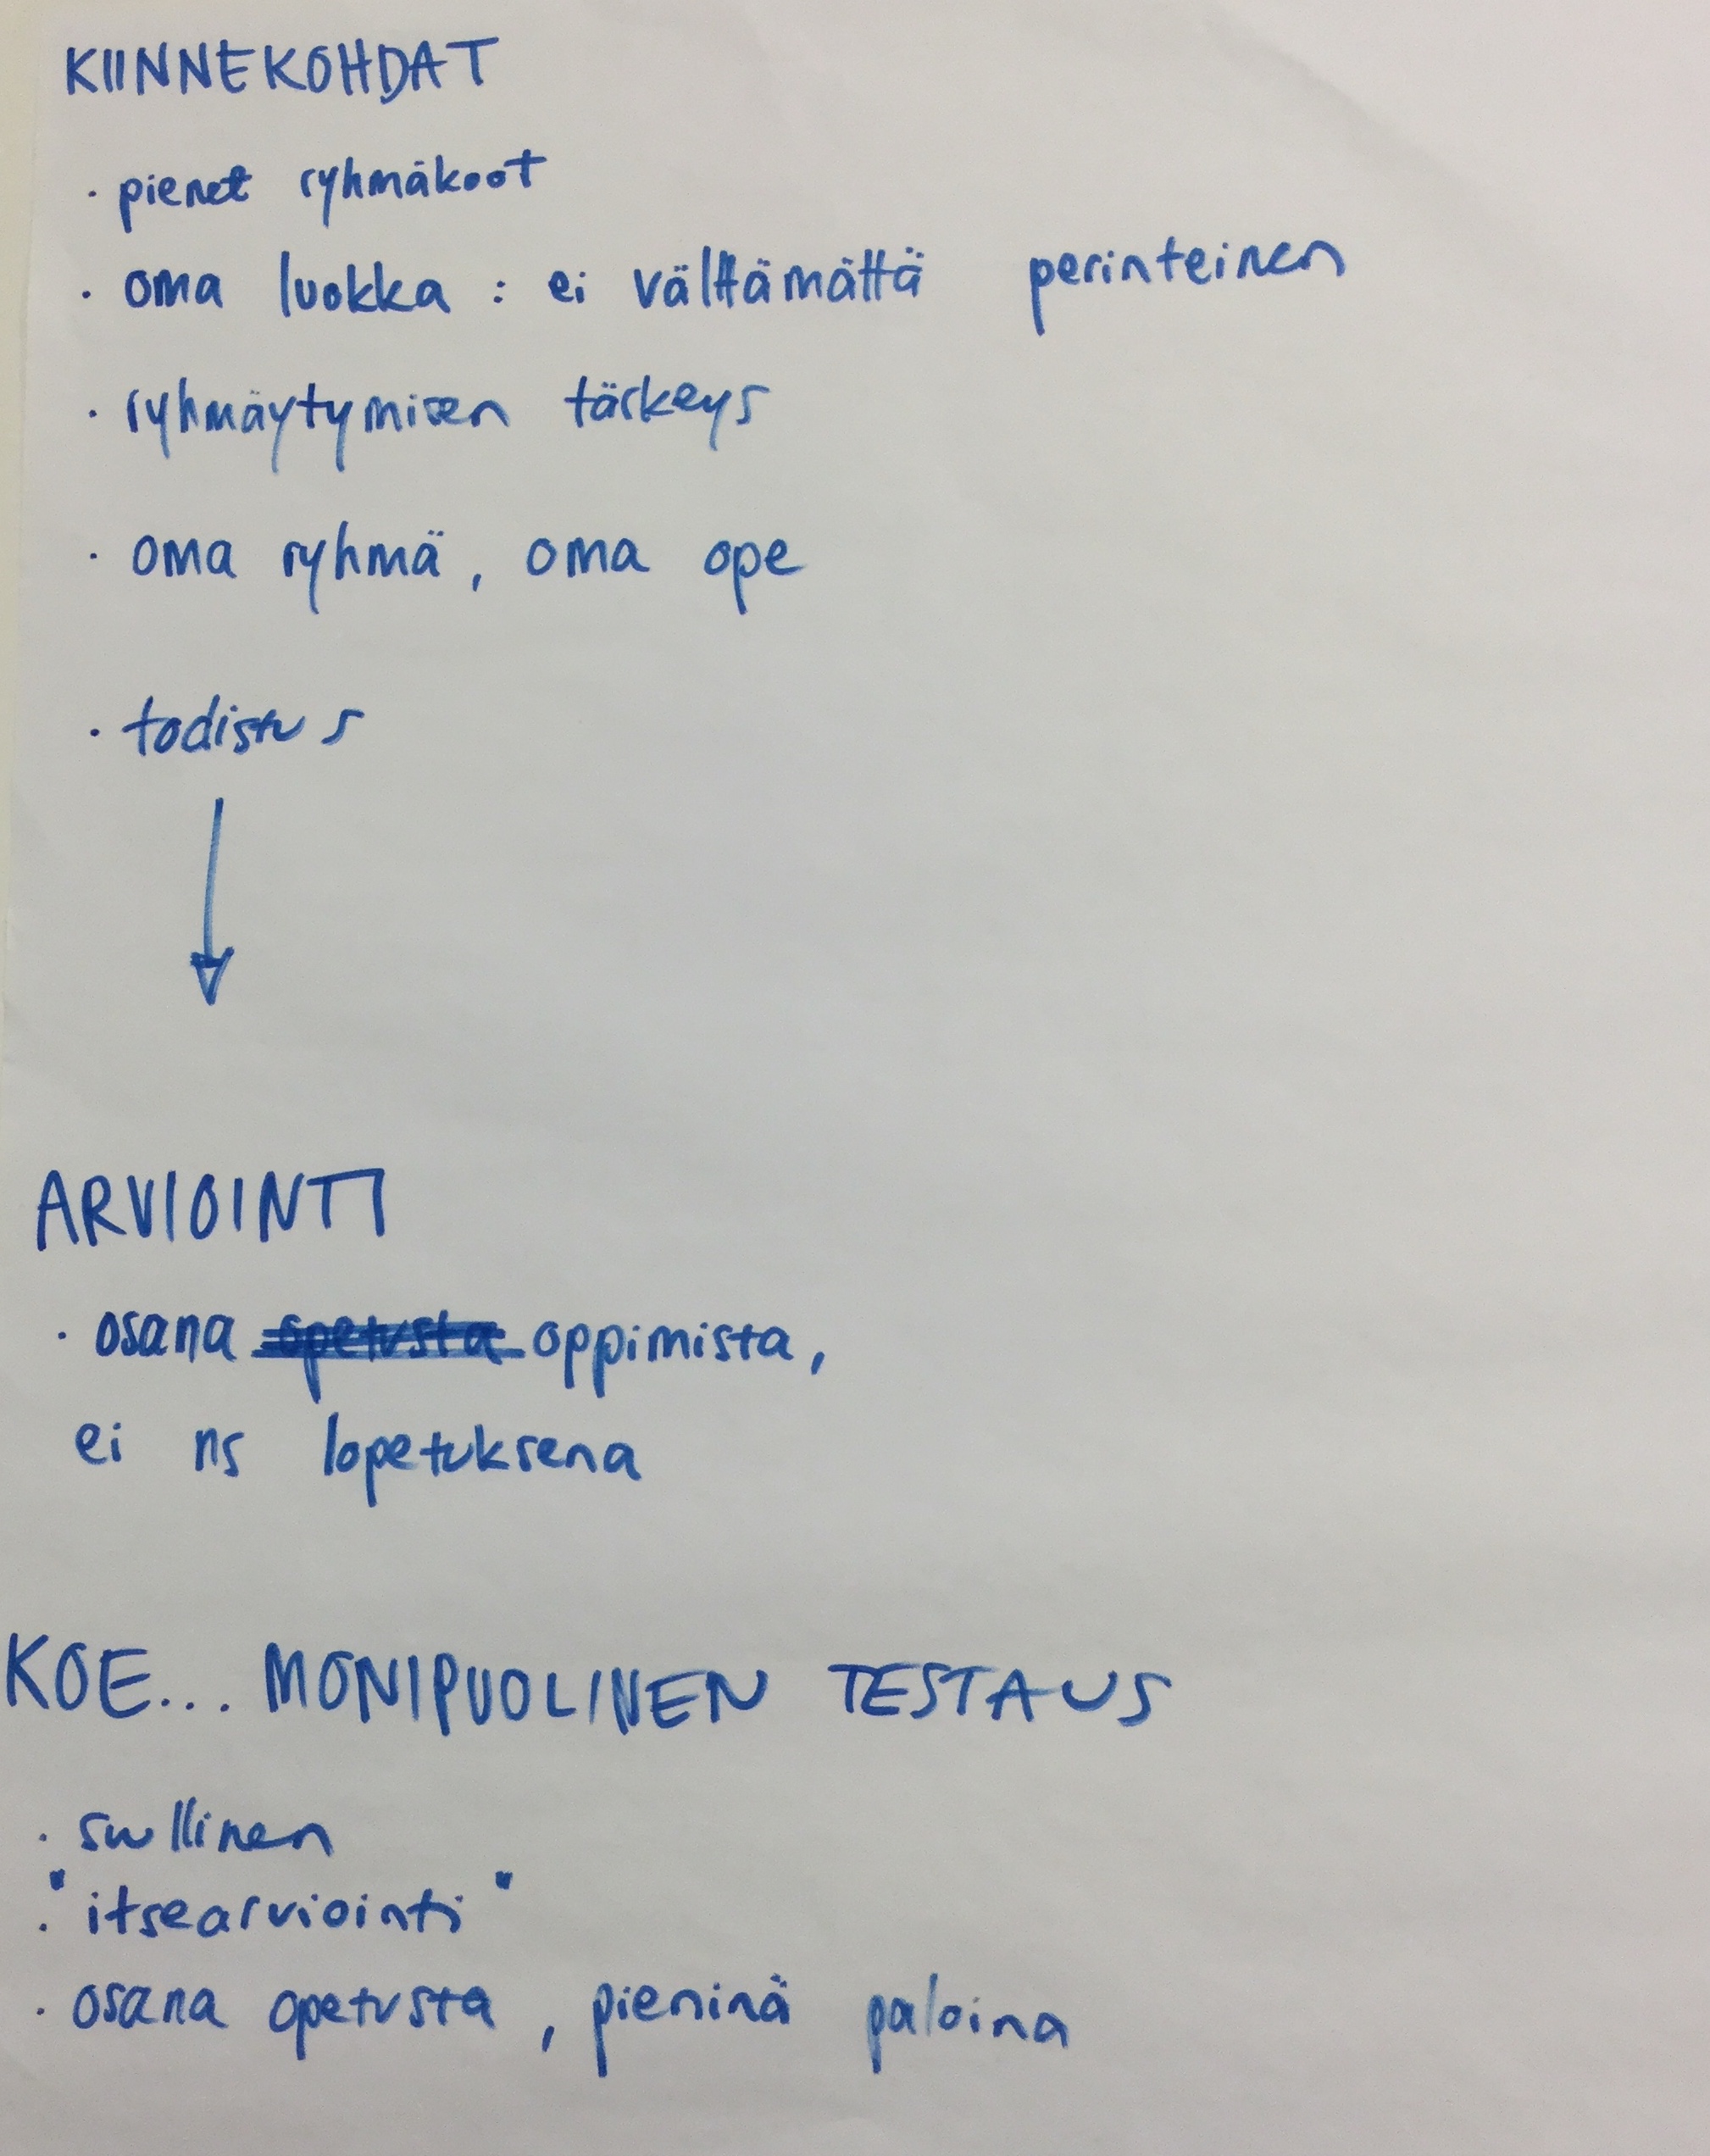 KIINNEKOHDAT
· pienet ryhmäkoot
· oma luokka : ei välttämättä perinteinen
· ryhmäytymisen tärkeys
· oma ryhmä, oma ope
· todistus
ARVIOINTI
· osana opetusta oppimista,
ei ns lopetuksena
KOE... MONIPUOLINEN TESTAUS
· suullinen
· "itsearviointi"
· osana opetusta, pieninä paloina